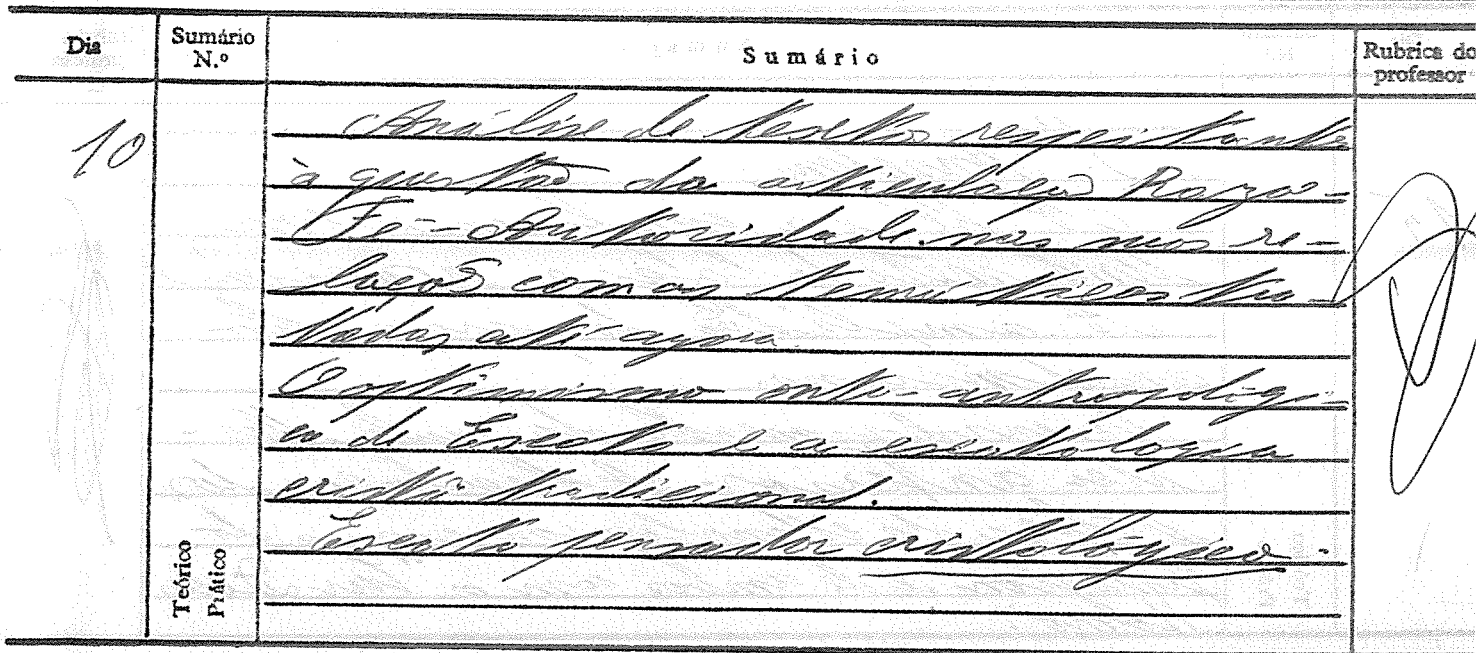 Dia
Sumário
N.º
Sumário
Rubrica do
professor
10
Análise de textos respeitante
à questão da articulação Razão-
Fé-Autoridade nas suas re-
lações com as temáticas tra-
tadas até agora.
O optimismo onto-antropológi-
co de Escoto e a escatologia
cristã tradicional.
Escoto pensador cristológico.
Teórico
Prático